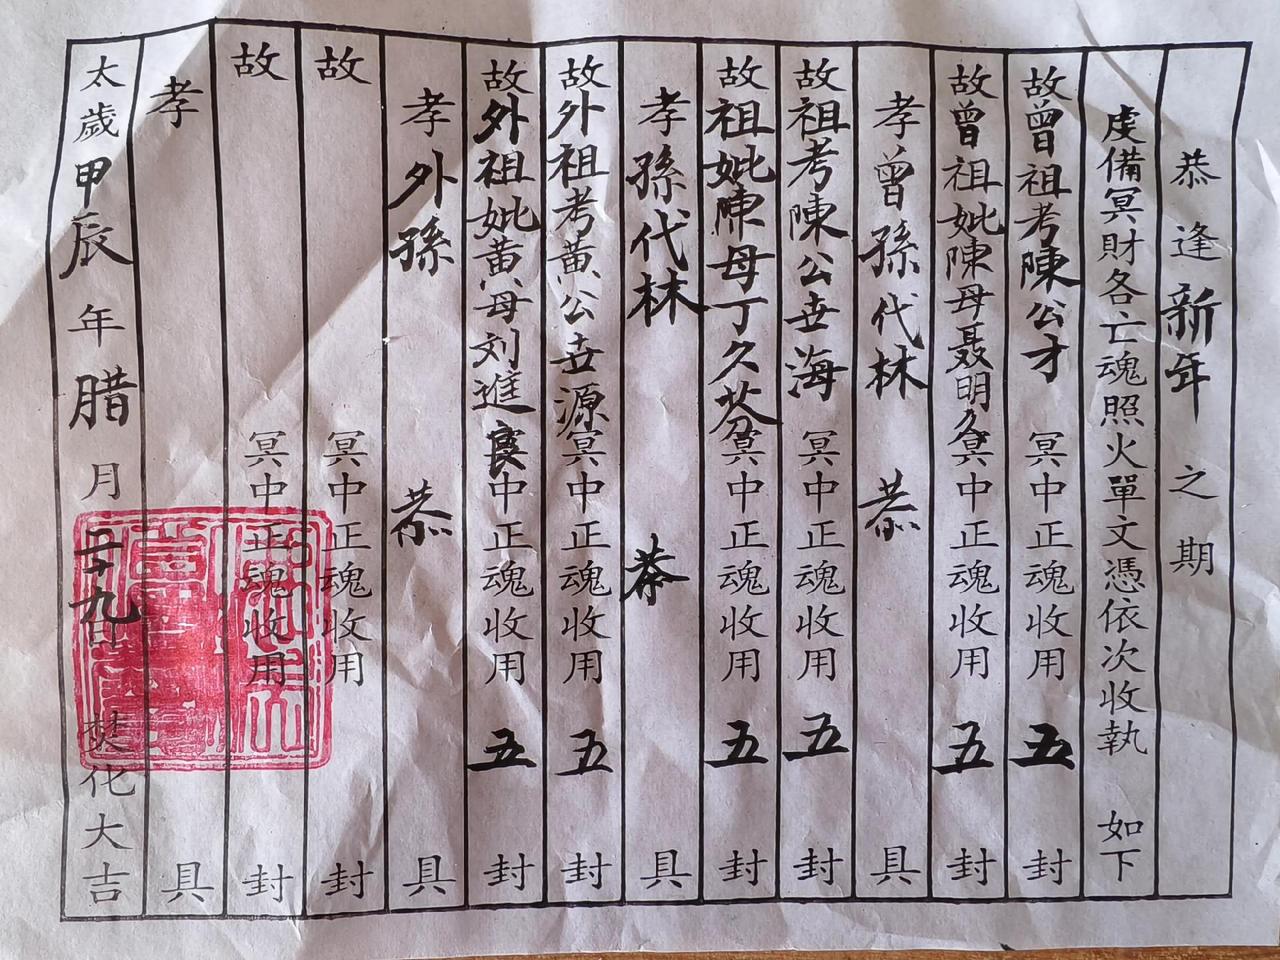 恭逢新年之期
虔備冥財各亡魂照火單文憑依次收執 如下
故曾祖考陳公才冥中正魂收用五封
故曾祖妣陳母聂明久冥中正魂收用五封
孝曾孫代林 恭具
故祖考陳公世海冥中正魂收用五封
故祖妣陳母丁久芬冥中正魂收用五封
孝孫代林 恭具
故外祖考黄公世源冥中正魂收用五封
故外祖妣黄母刘進良中正魂收用五封
孝外孫 恭具
故 冥中正魂收用 封
故 冥中正魂收用 封
孝 具
太歲甲辰年腊月二十九日 焚化大吉